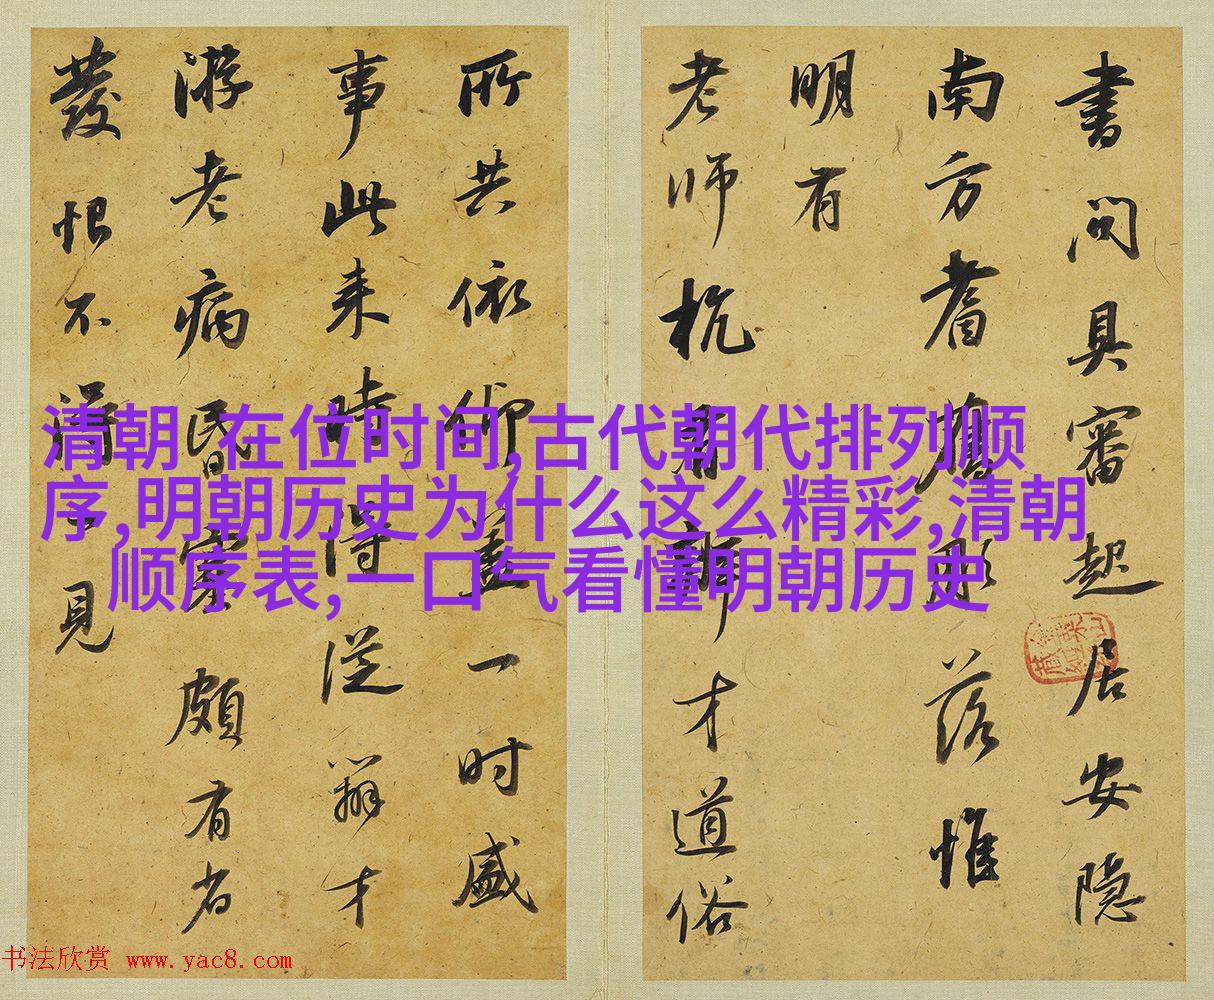 書問具審起居安隱
南方耆舊彫落惟
明有
老師杭有辯才道俗
所共依仰盖一時盛
事此来時得從辯才
游老病昏蒙頗有省
發恨不見
清朝 在位时间,古代朝代排列顺
序,明朝历史为什么这么精彩,清朝
顺序表,一口气看懂明朝历史
书法欣赏 www.yac8.com